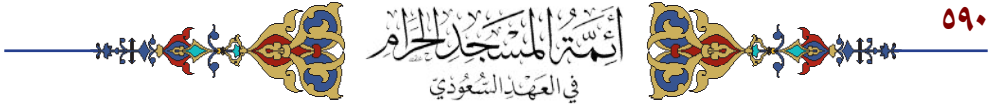 ٥٩٠
أَئِمَّةُ المَسْجِدِ الحَرَامِ
فِي العَهْدِ السُّعُودِيّ